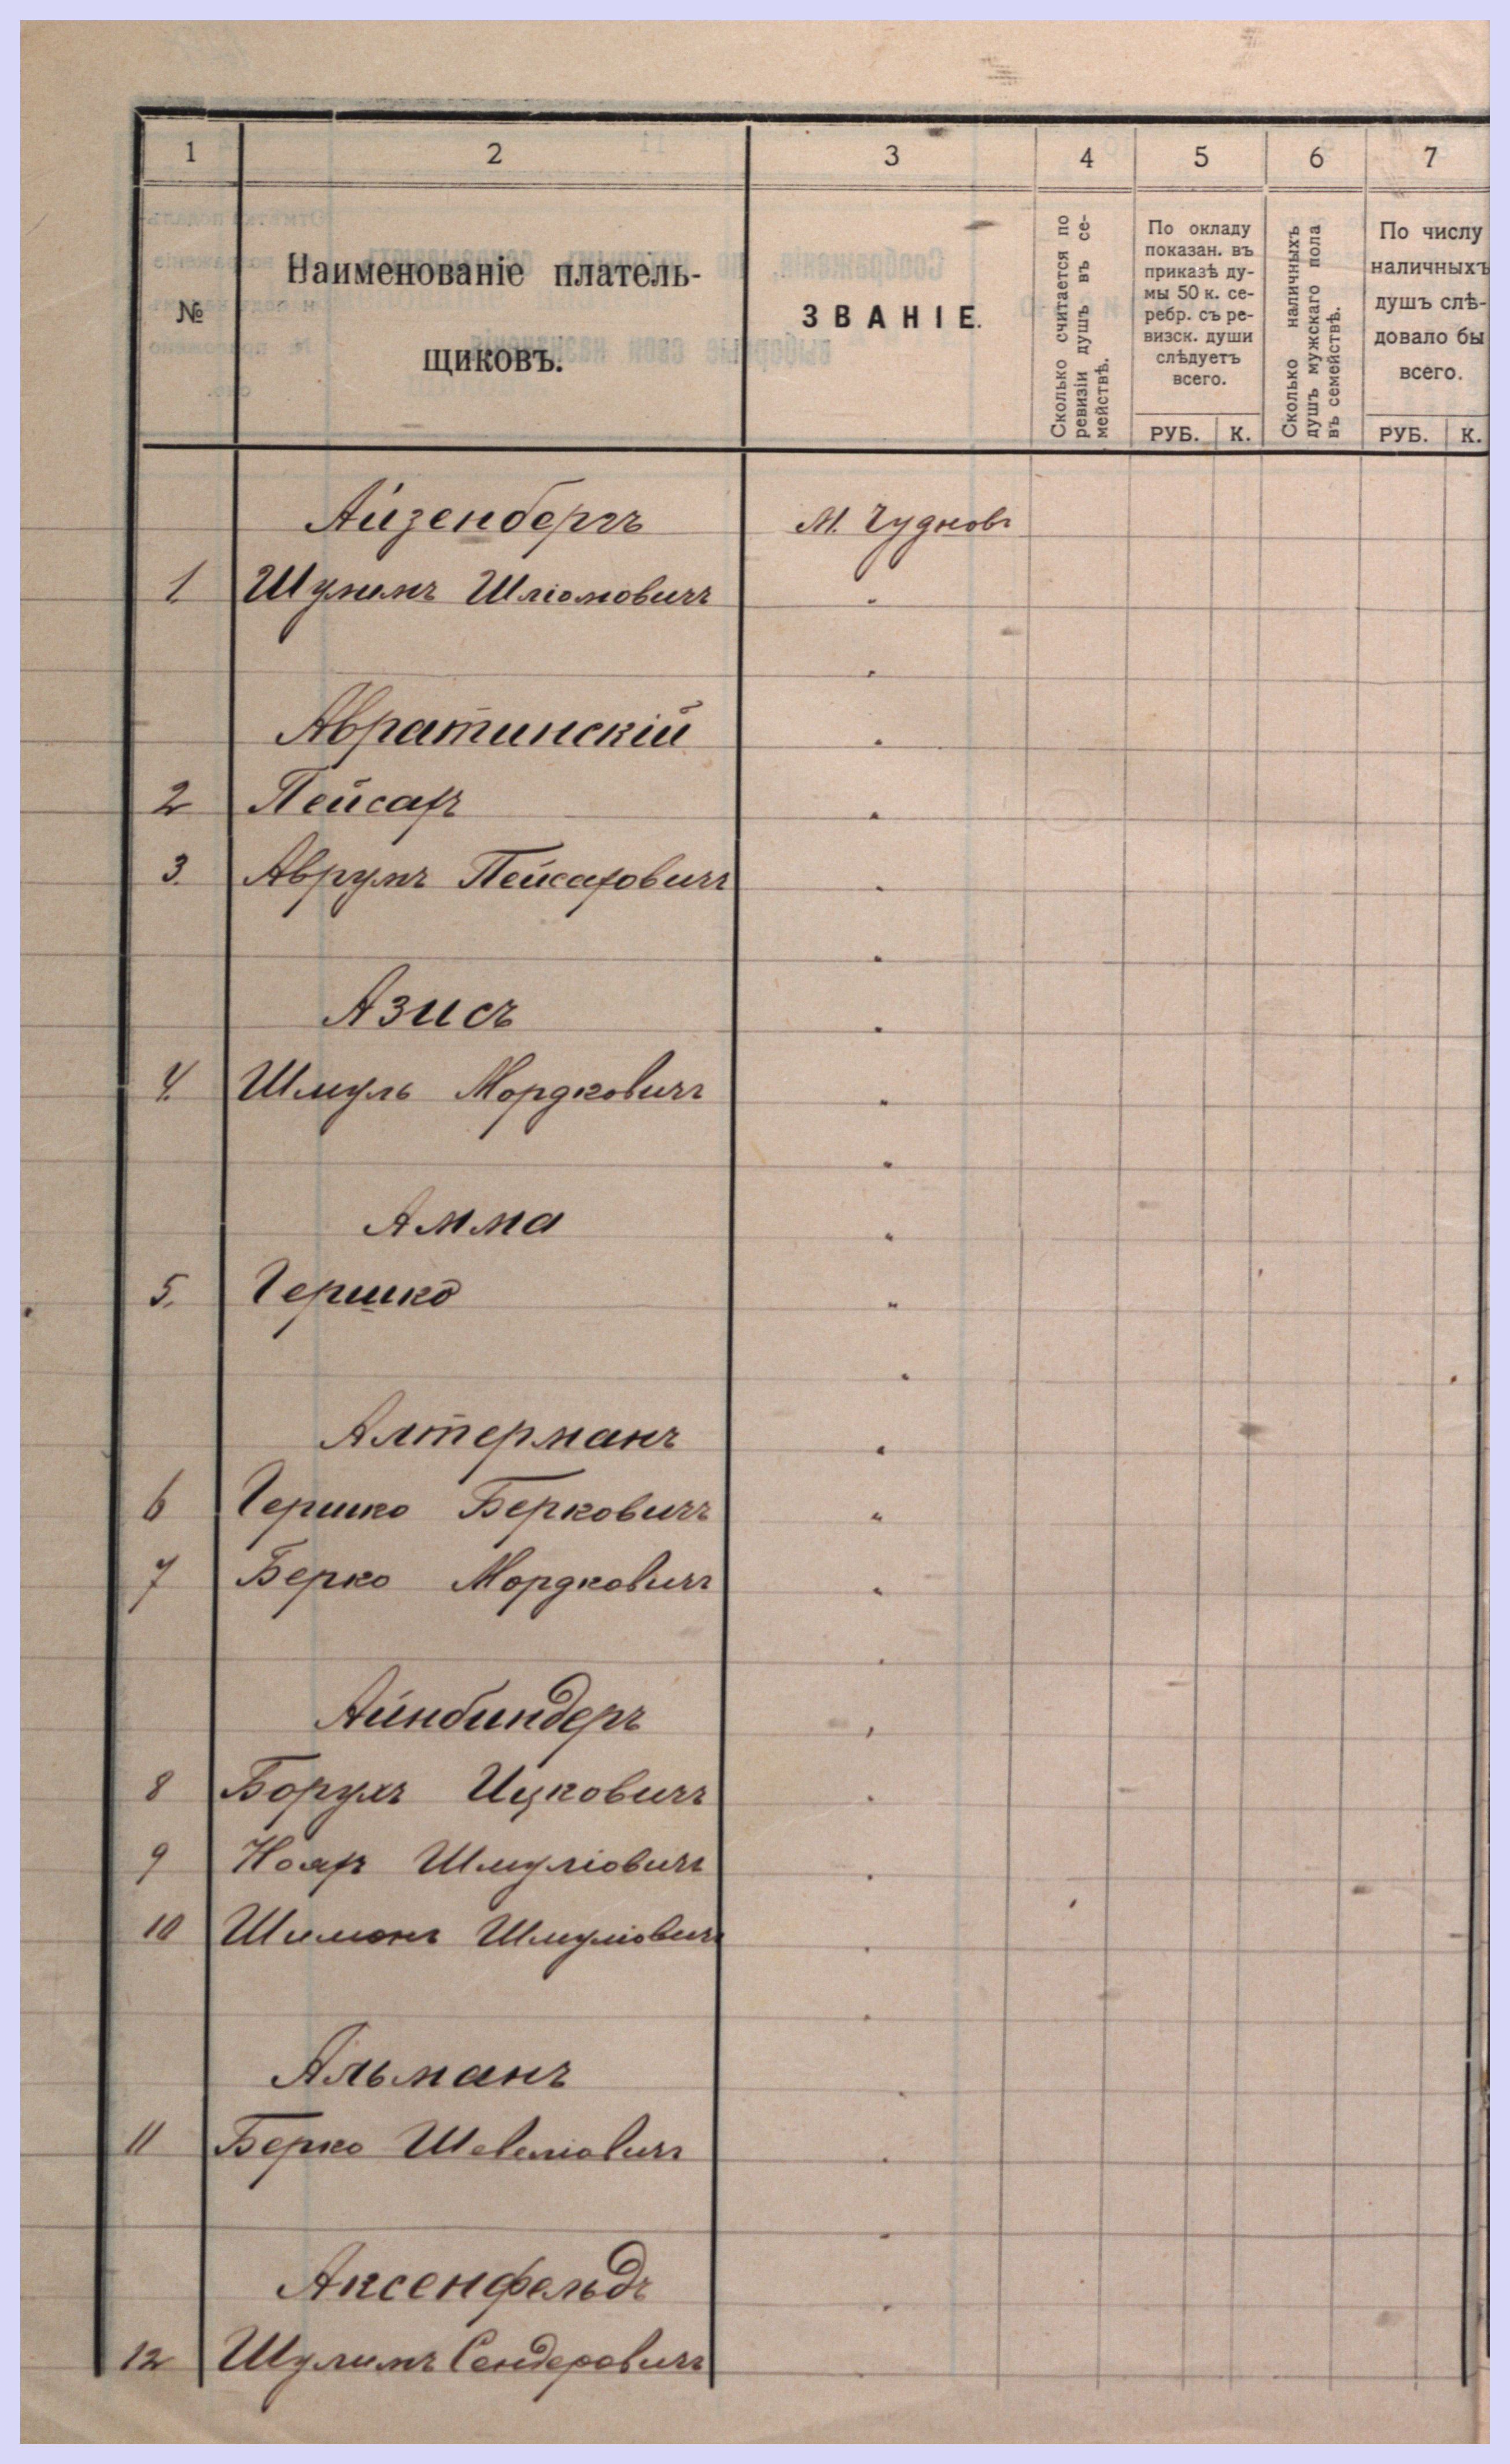 1 2 3 4 5 6 7
№
Наименованіе платель-
щиковъ.
ЗВАНІЕ.
Сколько считается по
ревизіи душъ въ се-
мействѣ.
По окладу
показан. въ
приказѣ ду-
мы 50 к. се-
ребр. съ ре-
визск. души
слѣдуетъ
всего.
РУБ. К.
Сколько наличныхъ
душъ мужскаго пола
въ семействѣ.
По числу
наличныхъ
душъ слѣ-
довало бы
всего.
РУБ. К.
Айзенбергъ М. Чудновъ
1. Шулимъ Шліомовичъ "
"
Авратинскій "
2 Пейсахъ "
3. Аврумъ Пейсаховичъ "
"
Азисъ "
4. Шмуль Мордковичъ "
"
Амма "
5. Гершко "
"
Алтерманъ "
6 Гершко Берковичъ "
7 Берко Мордковичъ "
"
Айнбиндеръ "
8 Борухъ Ицковичъ "
9 Нояхъ Шмуліовичъ "
10 Шимонъ Шмуліовичъ "
"
Альманъ "
11 Берко Шевеліовичъ "
"
Аксенфельдъ "
12 Шулимъ Сендеровичъ "